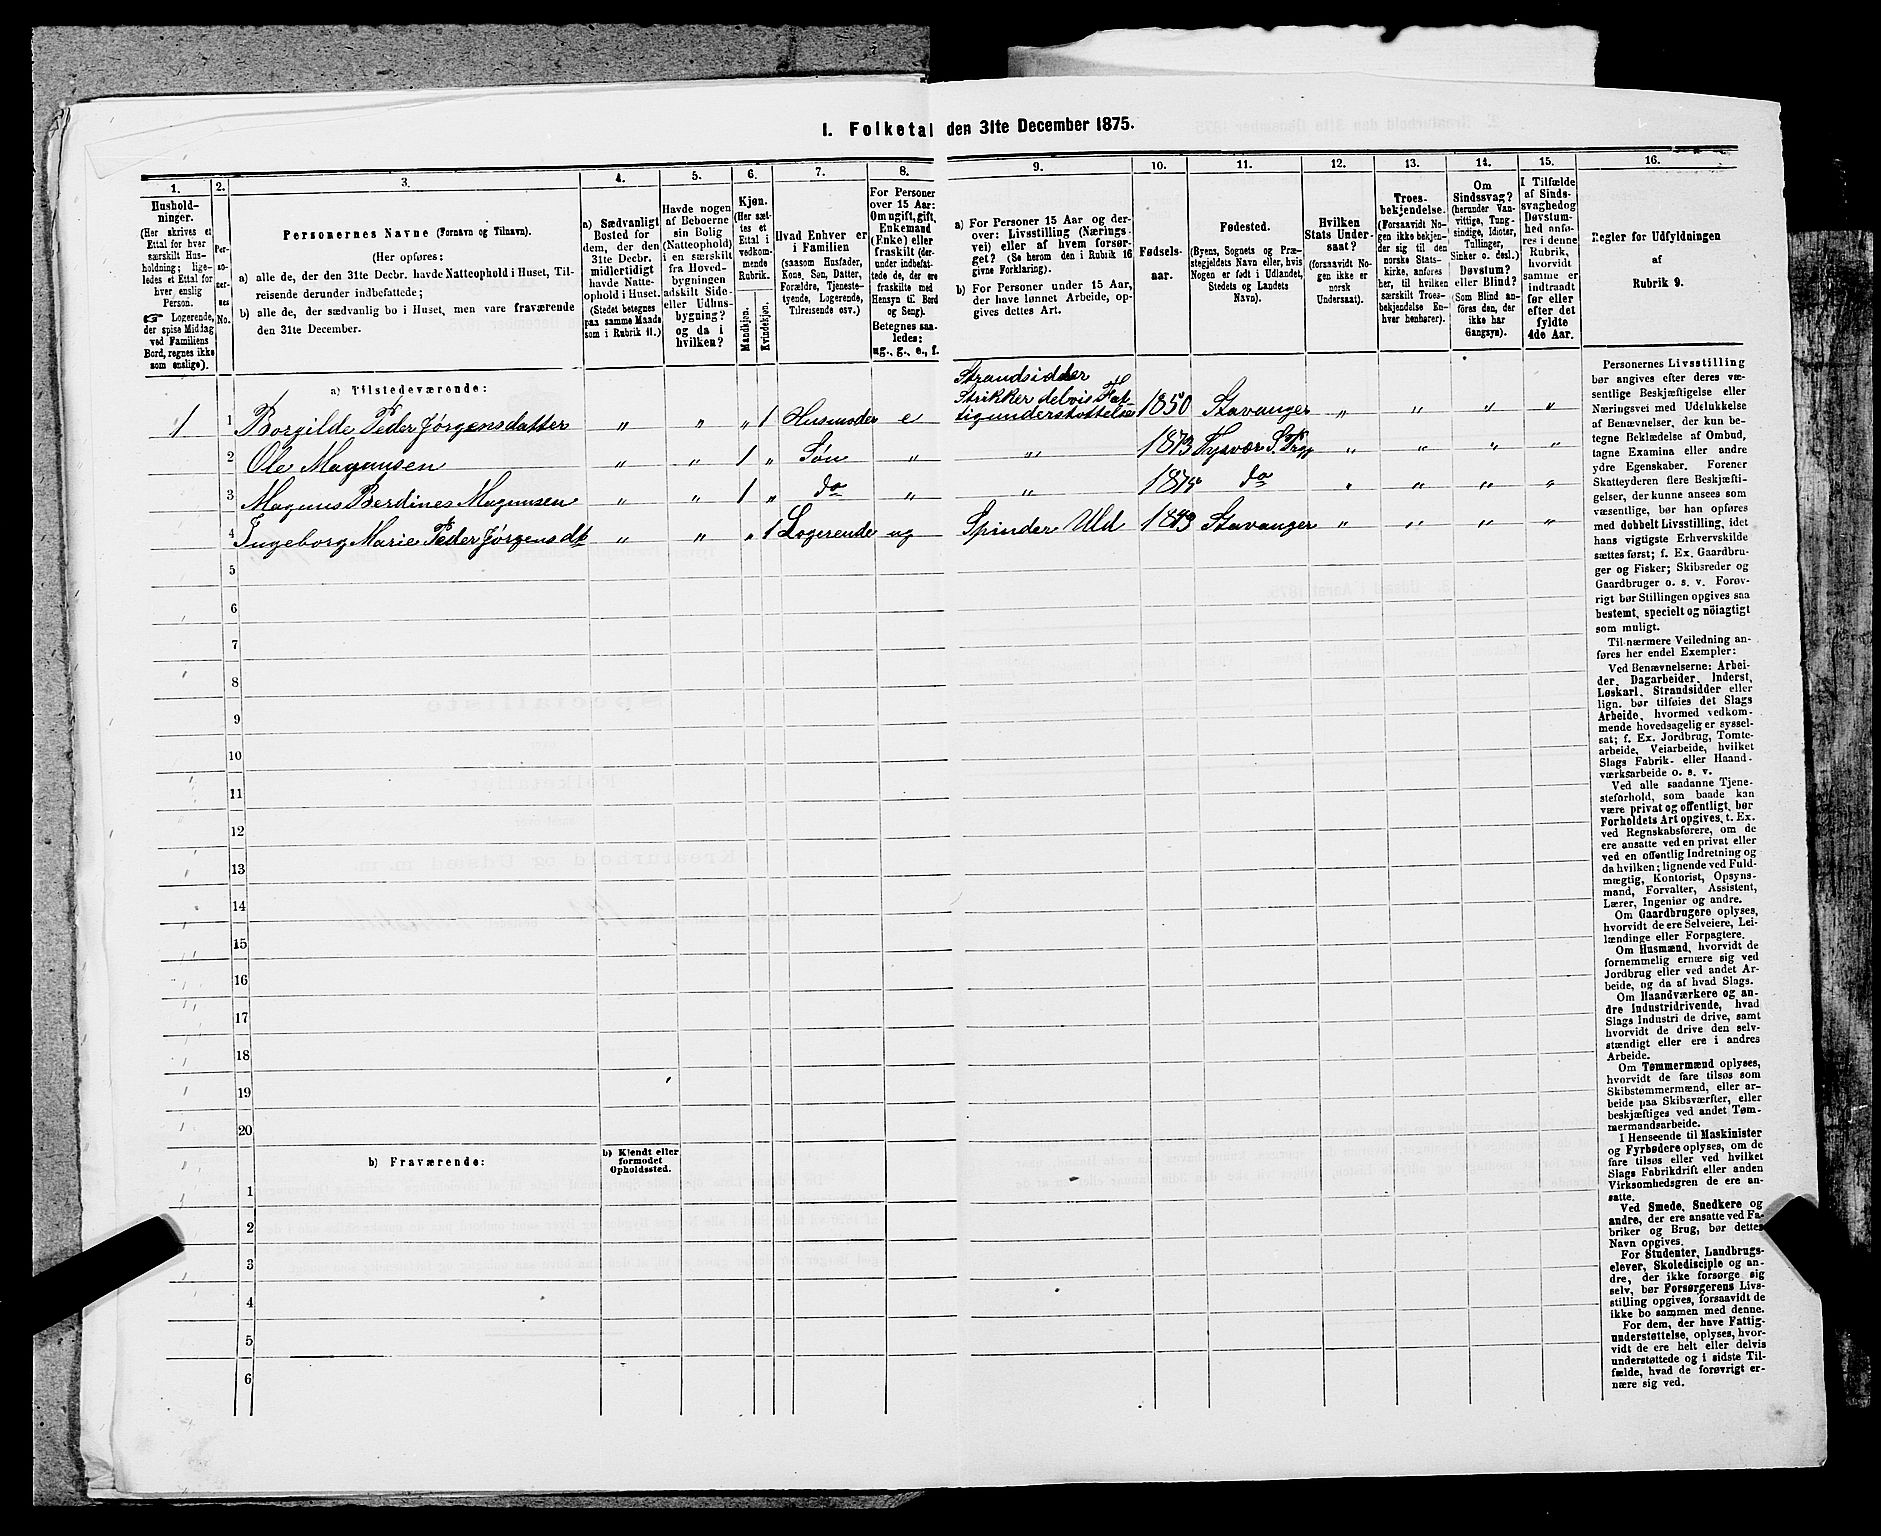 I. Folketal den 31te December 1875.
1. 2. 3. 4. 5. 6. 7. 8. 9. 10. 11. 12. 13. 14. 15. 16.
Hushold-
ninger.
(Her skrives et
Ettal for hver
særskilt Hus-
holdning; lige-
ledes et Ettal for
hver enslig
Person.
☞ Logerende,
der spise Middag
ved Familiens
Bord, regnes ikke
som enslige).
Per-
so-
ner-
nes
No.
Personernes Navne (Fornavn og Tilnavn).
(Her opføres:
a) alle de, der den 31te Decbr. havde Natteophold i Huset, Til-
reisende derunder indbefattede;
b) alle de, der sædvanlig bo i Huset, men vare fraværende
den 31te December.
a) Sædvanligt
Bosted for
dem, der den
31te Decbr.
midlertidigt
havde Natte-
ophold i Huset.
(Stedet betegnes
paa samme Maade
som i Rubrik 11.)
Havde nogen
af Beboerne
sin Bolig
(Natteophold)
i en særskilt
fra Hoved-
bygningen
adskilt Side-
eller Udhus-
bygning?
og da i
hvilken?
Kjøn.
(Her sæt-
tes et
Ettal i
vedkom-
mende
Rubrik.
Mandkjøn.
Kvindekjøn.
Hvad Enhver er
i Familien
(saasom Husfader,
Kone, Søn, Datter,
Forældre, Tjeneste-
tyende, Logerende,
Tilreisende osv.)
For Personer
over 15 Aar:
Om ugift, gift,
Enkemand
(Enke) eller
fraskilt (der-
under indbefat-
tede de, der ere
fraskilte med
Hensyn til Bord
og Seng).
Betegnes saa-
ledes:
ug., g., e., f.
a) For Personer 15 Aar og der-
over: Livsstilling (Nærings-
vei) eller af hvem forsør-
get? (Se herom den i Rubrik 16
givne Forklaring).
b) For Personer under 15 Aar,
der have lønnet Arbeide, op-
gives dettes Art.
Fødsels-
aar.
Fødested.
(Byens, Sognets og Præ-
stegjeldets Navn eller, hvis
Nogen er født i Udlandet,
Stedets og Landets
Navn).
Hvilken
Stats Under-
saat?
(forsaavidt No-
gen ikke er
norsk
Undersaat).
Troes-
bekjendelse.
(Forsaavidt No-
gen ikke bekjen-
der sig til den
norske Stats-
kirke, anføres
her, til hvilken
særskilt Troes-
bekjendelse En-
hver henhører).
Om
Sindssvag?
(herunder Van-
vittige, Tung-
sindige, Idioter,
Tullinger,
Sinker o. desl.)
Døvstum?
eller Blind?
(Som Blind an-
føres den, der
ikke har
Gangsyn).
I Tilfælde
af Sinds-
svaghed og
Døvstum-
hed anfø-
res i denne
Rubrik,
hvorvidt
samme er
indtraadt
før eller
efter det
fyldte
4de Aar.
Regler for Udfyldningen
af
Rubrik 9.
a) Tilstedeværende:
Strandsidder
Strikker delvis Fat-
1 1 Borgilde Peder Jørgensdatter " " " 1 Husmoder e tigunderstøttelse 1850 Stavanger " " " "
2 Ole Magnusen " " 1 " Søn " " 1873 Tysvær S. Prgj " " " "
3 Magnus Berdines Magnusen " " 1 " do " " 1875 do " " " "
4 Ingeborg Marie Peder Jørgensdt " " " 1 Logerende ug Spinder Uld 1843 Stavanger " " " "
5
6
7
8
9
10
11
12
13
14
15
16
17
18
19
20
b) Fraværende:
b) Kjendt eller
formodet
Opholdssted.
1
2
3
4
5
6
Personernes Livsstilling
bør angives efter deres væ-
sentlige Beskjæftigelse eller
Næringsvei med Udelukkelse
af Benævnelser, der kun be-
tegne Beklædelse af Ombud,
tagne Examina eller andre
ydre Egenskaber. Forener
Skatteyderen flere Beskjæfti-
gelser, der kunne ansees som
væsentlige, bør han opføres
med dobbelt Livsstilling, idet
hans vigtigste Erhvervskilde
sættes først; f. Ex. Gaardbru-
ger og Fisker; Skibsreder og
Gaardbruger o. s. v. Forøv-
rigt bør Stillingen opgives saa
bestemt, specielt og nöiagtigt
som muligt.
Til nærmere Veiledning an-
føres her endel Exempler:
Ved Benævnelserne: Arbei-
der, Dagarbeider, Inderst,
Løskarl, Strandsidder eller
lign. bør tilføies det Slags
Arbeide, hvormed vedkom-
mende hovedsagelig er syssel-
sat; f. Ex. Jordbrug, Tomte-
arbeide, Veiarbeide, hvilket
Slags Fabrik- eller Haand-
værksarbeide o. s. v.
Ved alle saadanne Tjene-
steforhold, som baade kan
være privat og offentligt, bør
Forholdets Art opgives, t. Ex.
ved Regnskabsførere, om de
ere ansatte ved en privat eller
ved en offentlig Indretning og
da hvilken; lignende ved Fuld-
mægtig, Kontorist, Opsyns-
mand, Forvalter, Assistent,
Lærer, Ingeniør og andre.
Om Gaardbrugere oplyses,
hvorvidt de ere Selveiere, Lei-
lændinge eller Forpagtere.
Om Husmænd, hvorvidt de
fornemmelig ernære sig ved
Jordbrug eller ved andet Ar-
beide, og da af hvad Slags.
Om Haandværkere og an-
dre Industridrivende, hvad
Slags Industri de drive, samt
hvorvidt de drive den selv-
stændigt eller ere i andres
Arbeide.
Om Tømmermænd oplyses,
hvorvidt de fare tilsøs som
Skibstømmermænd, eller ar-
beide paa Skibsværfter, eller
beskjæftiges ved andet Tøm-
mermandsarbeide.
I Henseende til Maskinister
og Fyrbødere oplyses, om de
fare tilsøs eller ved hvilket
Slags Fabrikdrift eller anden
Virksomhedsgren de ere an-
satte.
Ved Smede, Snedkere og
andre, der ere ansatte ved Fa-
briker og Brug, bør dettes
Navn opgives.
For Studenter, Landbrugs-
elever, Skoledisciple og an-
dre, der ikke forsørge sig
selv, bør Forsørgerens Livs-
stilling opgives, forsaavidt de
ikke bo sammen med denne.
For dem, der have Fattig-
understøttelse, oplyses, hvor-
vidt de ere helt eller delvis
understøttede og i sidste Til-
fælde, hvad de forøvrigt er-
nære sig ved.